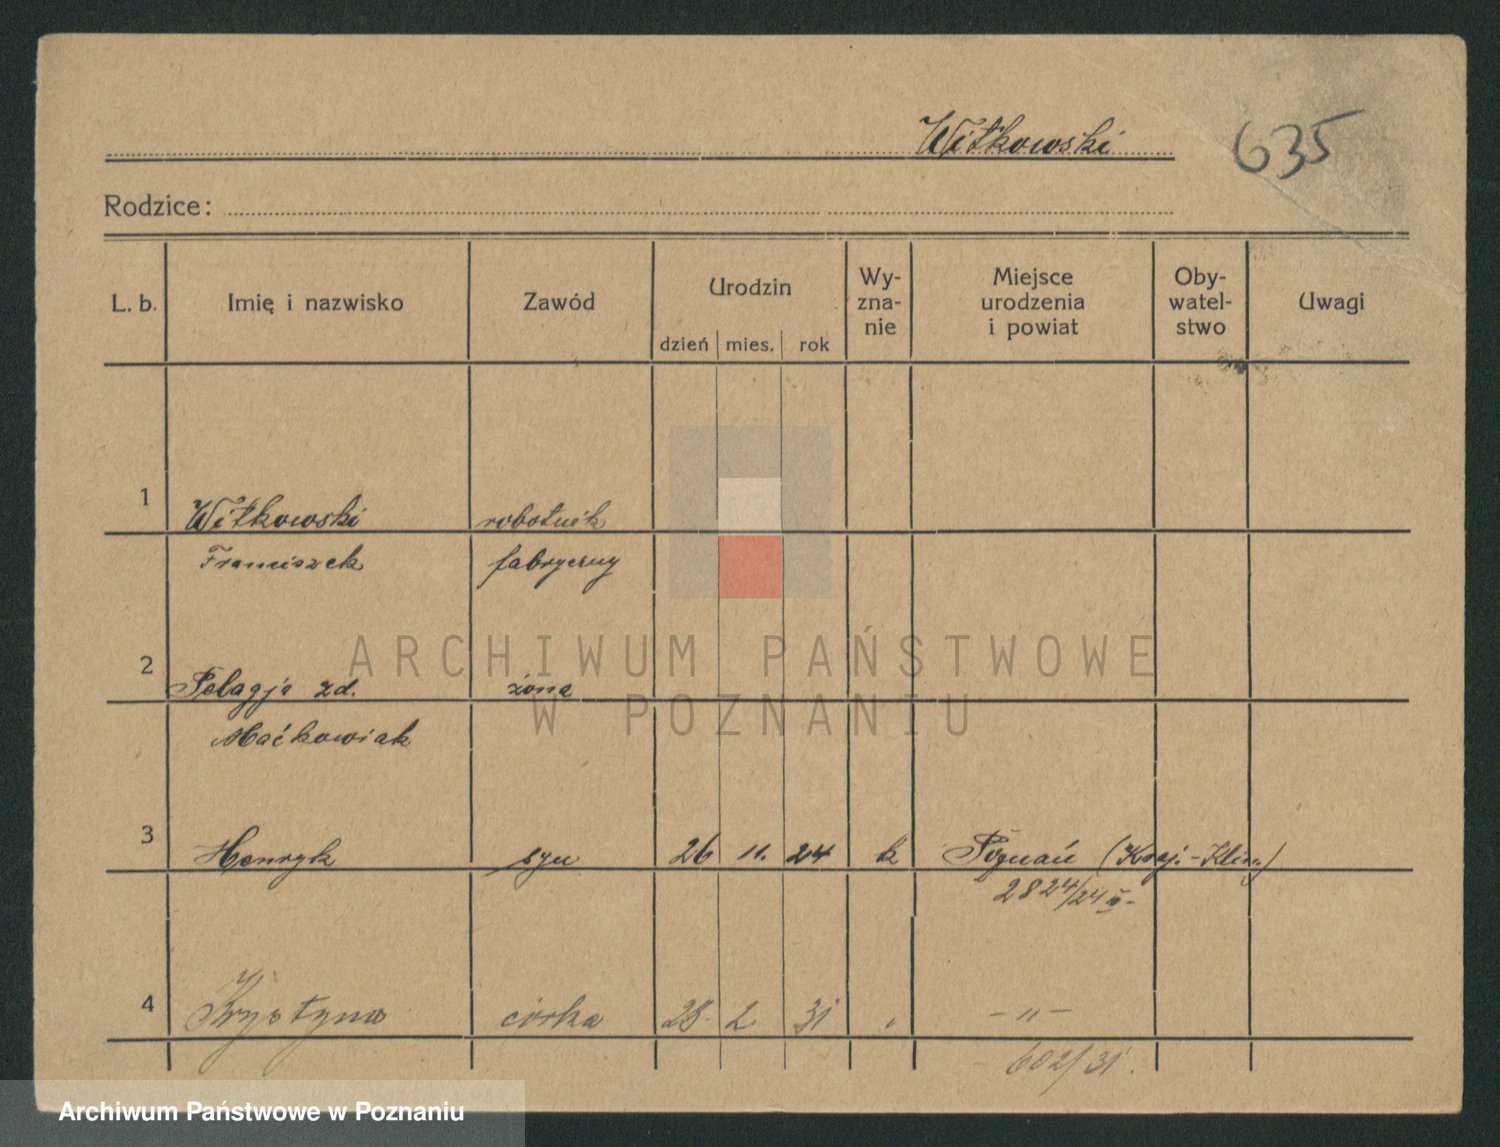 Witkowski
635
Rodzice:
L. b. Imię i nazwisko Zawód Urodzin dzień mies. rok Wy-zna-nie Miejsce urodzenia i powiat Oby-watel-stwo Uwagi
1 Witkowski robotnik
Franciszek fabryczny
2 Pelagja zd. żona
Maćkowiak
3 Henryk syn 26 11. 24 k Poznań (Kraj.-Klin.)
2824/24 IV-
4 Krystyna córka 28. 2 31 " -"-
602/31.
ARCHIWUM PAŃSTWOWE
W POZNANIU
Archiwum Państwowe w Poznaniu